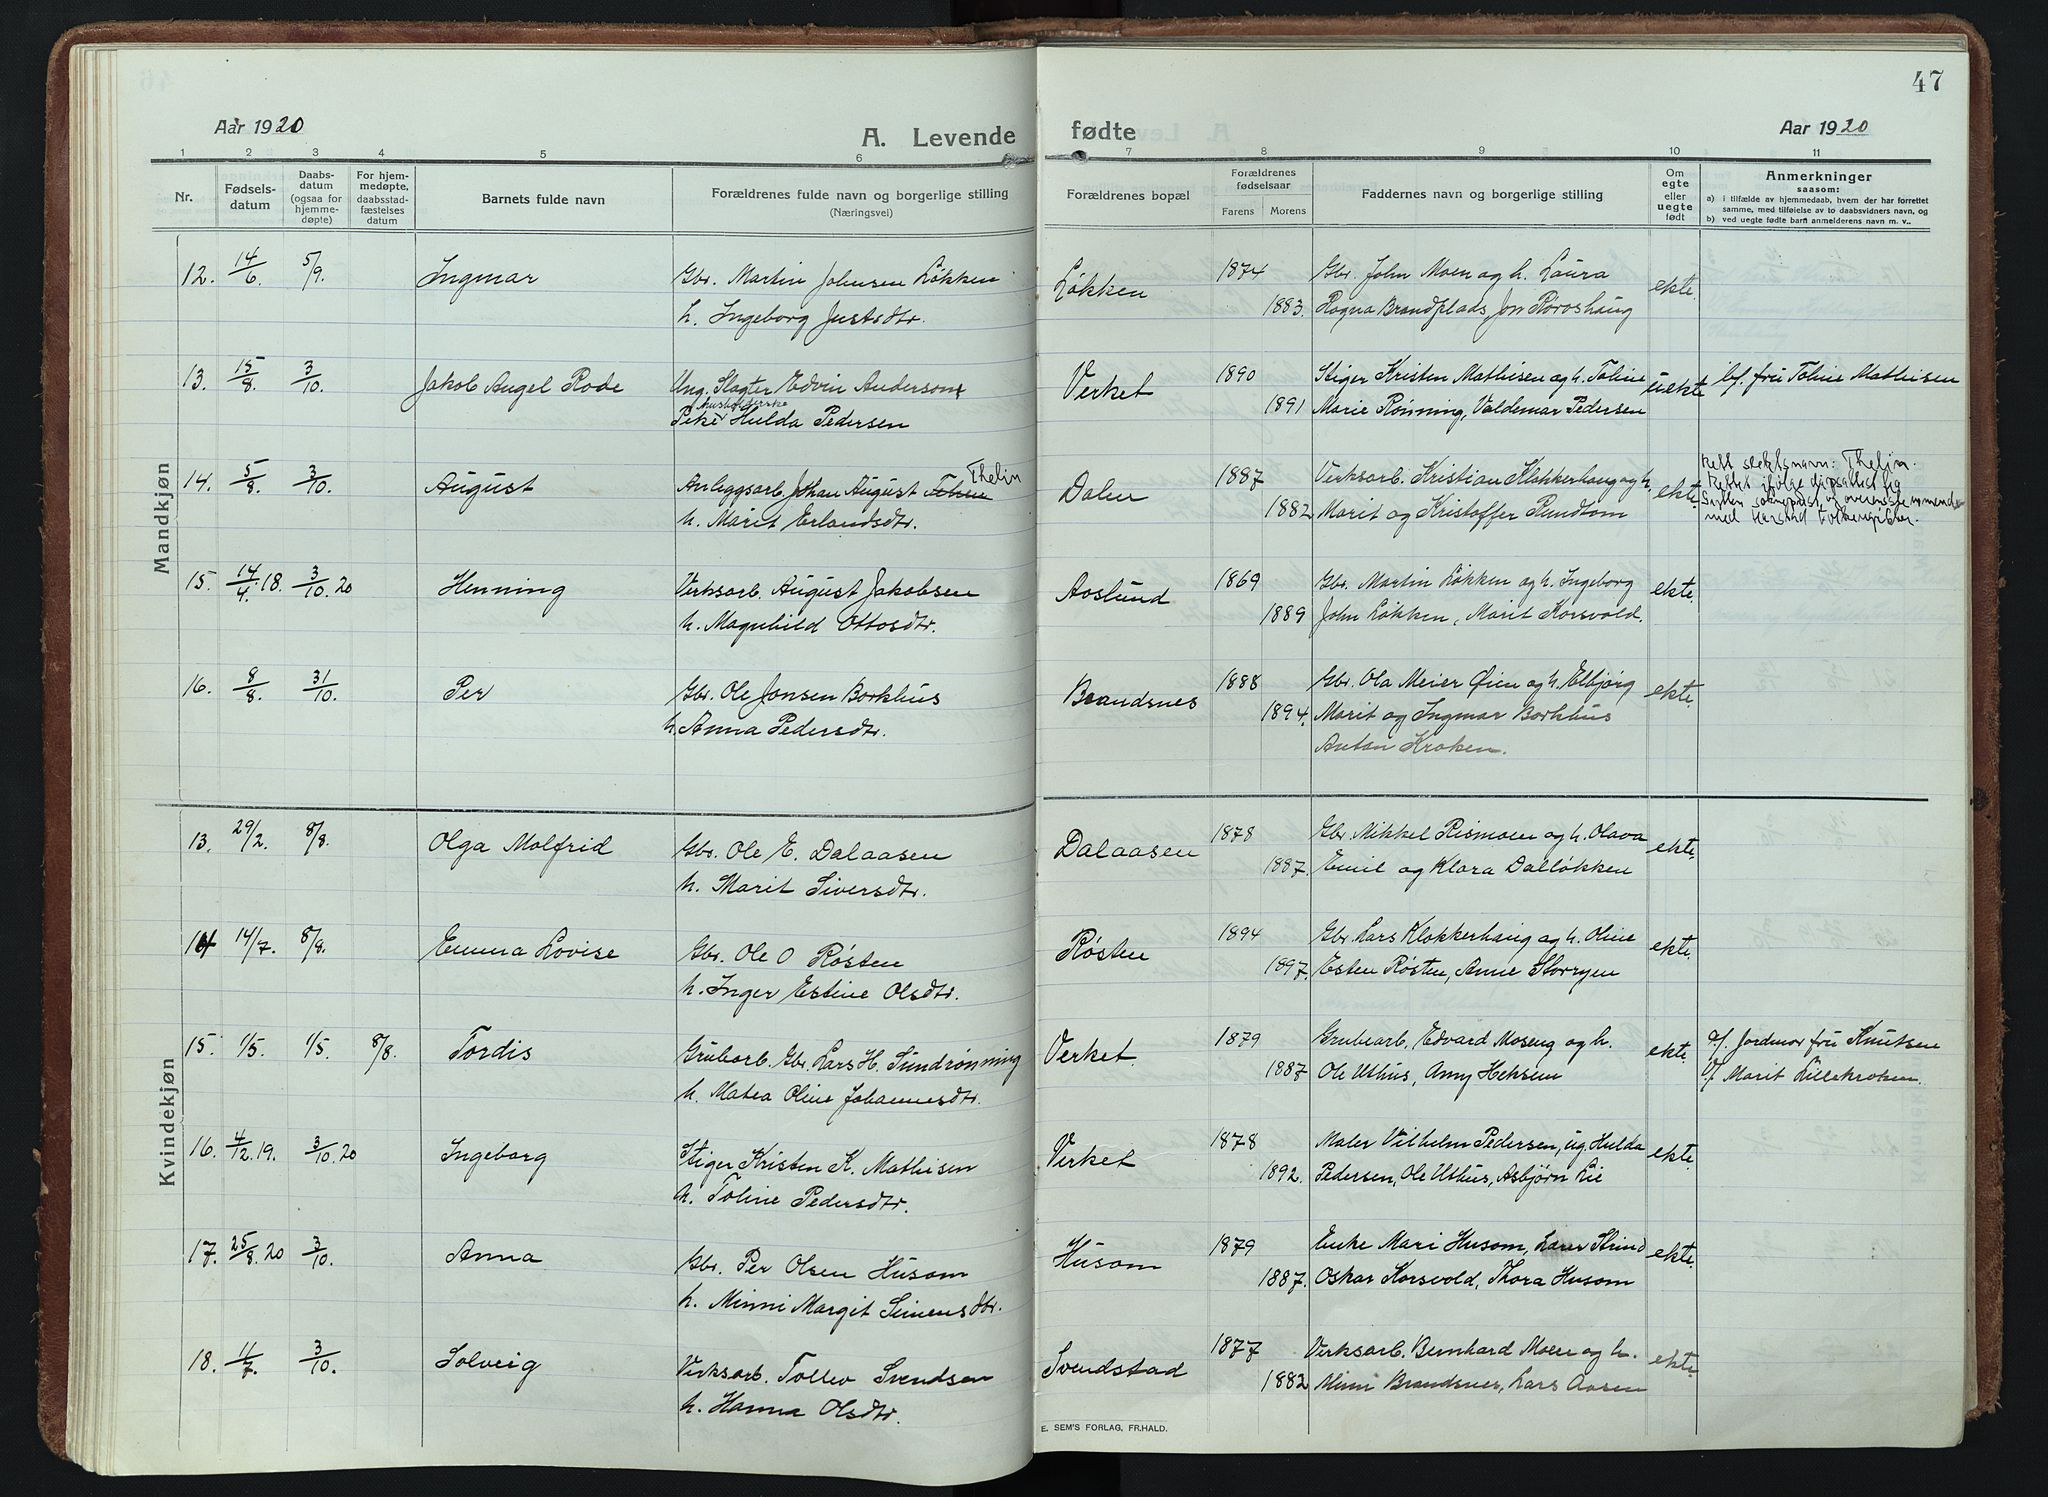 47
Aar 1920
A. Levende
fødte
Aar 1920
1 2 3 4 5 6 7 8 9 10 11
Nr.
Fødsels-
datum
Daabs-
datum
(ogsaa for
hjemme-
døpte)
For hjem-
medøpte,
daabsstad-
fæstelses
datum
Barnets fulde navn
Forældrenes fulde navn og borgerlige stilling
(Næringsvei)
Forældrenes bopæl
Forældrenes
fødselsaar
Farens Morens
Faddernes navn og borgerlige stilling
Om
egte
eller
uegte
født
Anmerkninger
saasom:
a) i tilfælde av hjemmedaab, hvem der har forrettet
samme, med tilføielse av to daabsvidners navn, og
b) ved uegte fødte barn anmelderens navn m. v..
Mandkjøn
12. 14/6 5/9. Ingmar Gbr. Martin Johnsen Løkken Løkken 1874 Gbr. John Moen og h. Laura ekte.
h. Ingeborg Justsdtr. 1883. Ragna Brandplads, Jon Røroshaug
13. 15/8. 3/10. Jakob Angel Rode Ung. Slagter Edvin Anderson Verket 1890 Stiger Kristen Mathisen og h. Toline uekte b/. fru Toline Mathisen
husholderske
Pike Hulda Pedersen 1891 Marie Rønning, Valdemar Pedersen
14. 5/8. 3/10. August Anleggsarb. Johan August Thelin Dalen 1887 Verksarb. Kristian Klokkerhaug og h. ekte. Rett slektsnavn: Thelin.
h. Marit Erlandsdtr. 1882 Marit og Kristoffer Rundtom
Rettet ifølge
med
15. 14/4. 18. 3/10. 20 Henning Verksarb. August Jakobsen Aaslund 1869 Gbr. Martin Løkken og h. Ingeborg ekte.
h. Magnhild Ottosdtr. 1889 John Løkken, Marit Korsvold.
16. 8/8. 31/10. Per Gbr. Ole Jonsen Borkhus Brandsnes 1888 Gbr. Ola Meier Øien og h. Elbjørg ekte.
h. Anna Pedersdtr. 1894. Marit og Ingmar Borkhus
Anton Kroken.
Kvindekjøn
13. 29/2. 8/8. Olga Molfrid Gbr. Ole E. Dalaasen Dalaasen 1878 Gbr. Mikkel Rismoen og h. Olava ekte.
h. Marit Siversdtr. 1887. Emil og Klara Dalløkken
14 14/7. 8/8. Emma Lovise Gbr. Ole O Røsten Røsten 1894 Gbr. Lars Klokkerhaug og h. Oline ekte.
h. Inger Estine Olsdtr. 1897. Esten Røsten, Anne Storryen
15. 1/5. 1/5. 8/8. Tordis Grubarb. Gbr. Lars H. Sundrønning Verket 1879 Grubearb. Edvard Moseng og h. ekte. a/. Jordmor fru Knutsen
h. Matea Oline Johannesdtr. 1887 Ole Uthus, Amy Heksem b/. Marit Lillekroken.
16. 4/12. 19. 3/10. 20 Ingeborg Stiger Kristen K. Mathisen Verket 1878 Maler Vilhelm Pedersen, ug. Hulda ekte.
h. Toline Pedersdtr. 1892. Pedersen, Ole Uthus, Asbjørn Lie
17. 25/8. 20 3/10. Anna Gbr. Per Olsen Husom Husom 1879 Enke Mari Husom, Lars Strind ekte.
h. Minni Margit Simensdtr. 1887. Oskar Korsvold, Thora Husom
18. 11/7. 3/10. Solveig Verksarb. Tollev Svendsen Svendstad 1877 Verksarb. Bernhard Moen og h. ekte.
h. Hanna Olsdtr. 1882 Minni Brandsnes, Lars Aasen
E. SEM'S FORLAG, FR.HALD.